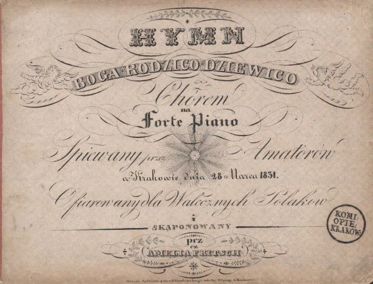 HYMN
BOGA RODZICO DZIEWICO
Chórem
na
Forte Piano
Spiewany przez Amatorów
w Krakowie dnia 28 Marca 1831.
Ofiarowany dla Walecznych Polaków
i
SKĄPONOWANY
prz
AMELIA FRITSCH
KOMI
OPIE
KRAKÓW